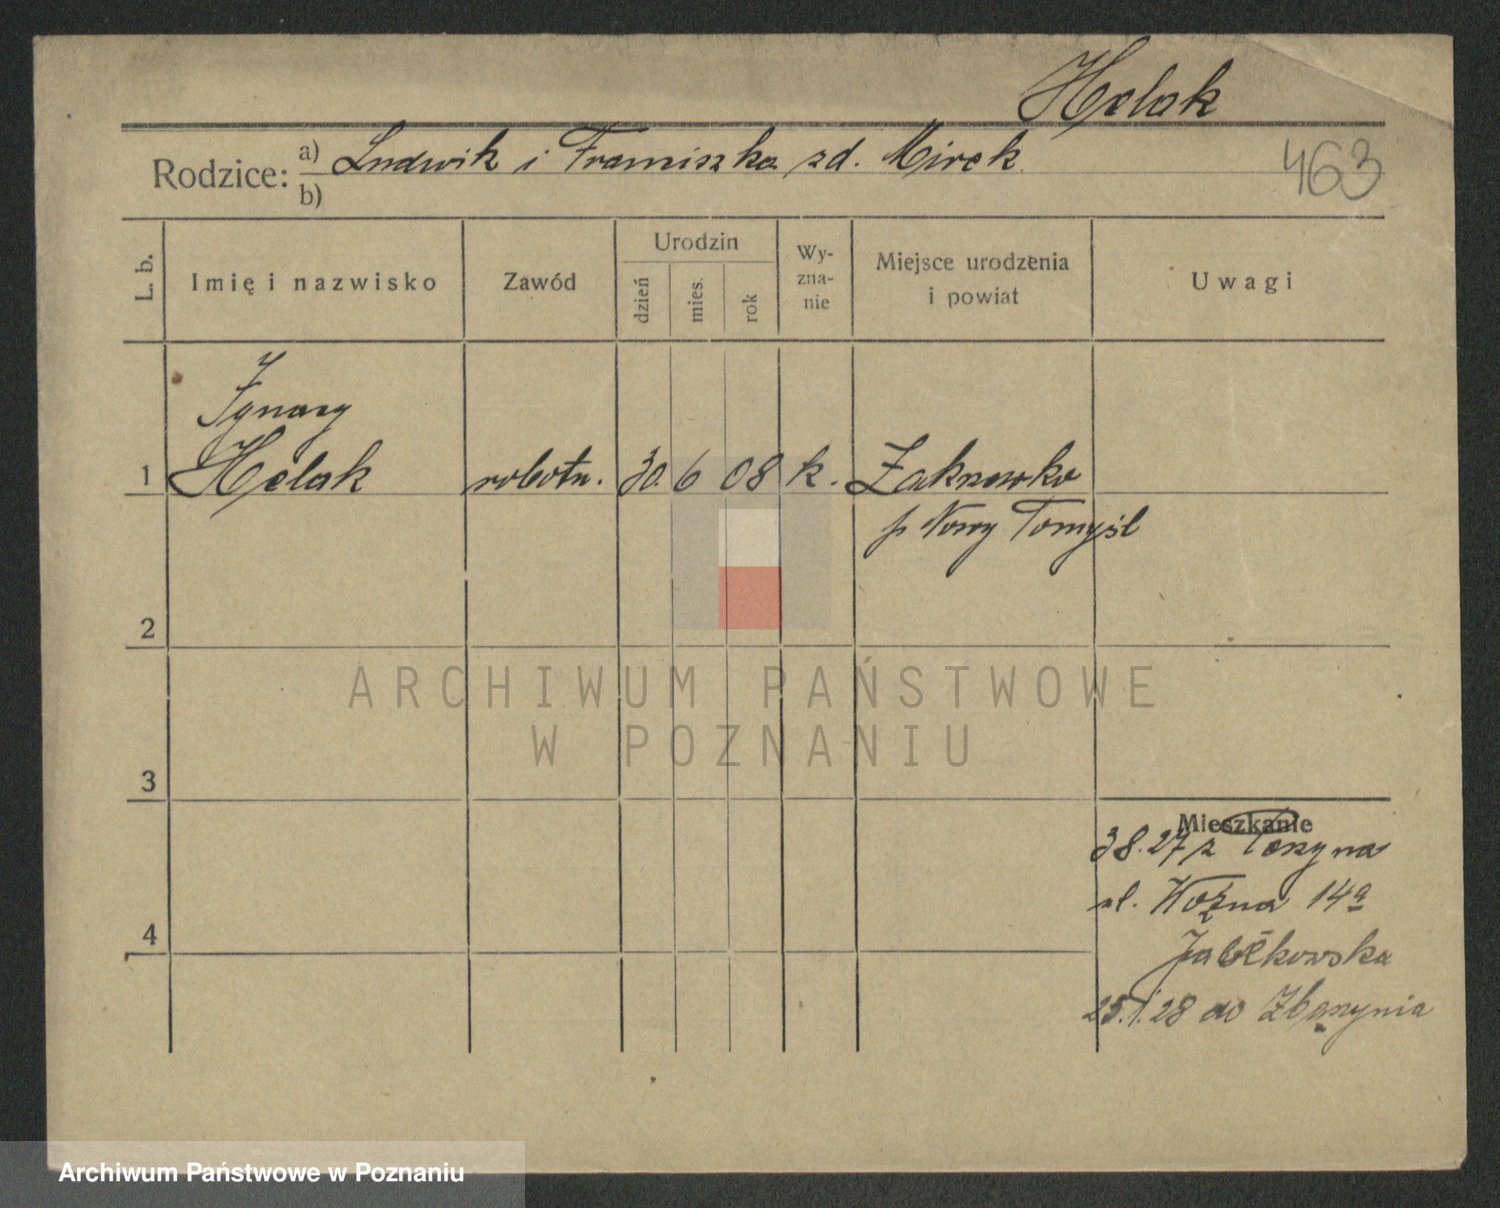 Helak
Rodzice: a) Ludwik i Franciszka zd. Mirek
b)
463
L. b.
Imię i nazwisko
Zawód
Urodzin
dzień
mies.
rok
Wy-
zna-
nie
Miejsce urodzenia
i powiat
Uwagi
Ignacy
1 Helak robotn. 30. 6 08 k.
p Nowy Tomyśl
2
ARCHIWUM PAŃSTWOWE
W POZNANIU
3
Mieszkanie
3 8.27 z
ul. Woźna 14a
4
Jabłkowska
25.1.28 do Zbąszynia
Archiwum Państwowe w Poznaniu